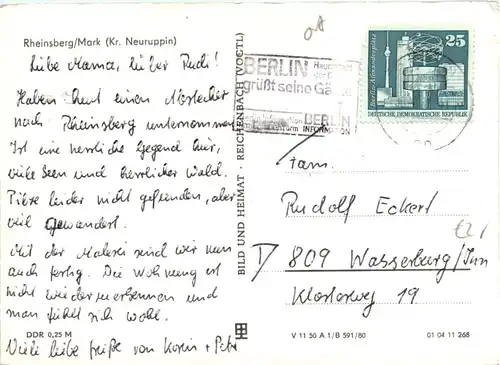 Rheinsberg/Mark (Kr. Neuruppin)
Liebe Mama, lieber Rudi!
Haben heut einen Abstecher
nach Rheinsberg unternommen
Ist eine herrliche Gegend hier,
viele Seen und herrlicher Wald.
Pilze leider nicht gefunden, aber
viel gewandert.
Mit der Malerei sind wir nun
auch fertig. Die Wohnung ist
nicht wiederzuerkennen und
man fühlt sich wohl.
DDR 0,25 M
Viele liebe Grüße von Karin + Peter
BILD UND HEIMAT - REICHENBACH (VOGTL)
BERLIN
grüßt seine Gä
BERLIN
INFORMATION
Berlin-Alexanderplatz
25
DEUTSCHE DEMOKRATISCHE REPUBLIK
Fam.
Rudolf Eckert
D 809 Wasserburg/Inn
Klosterweg 19
V 11 50 A 1/B 591/80
01 04 11 268